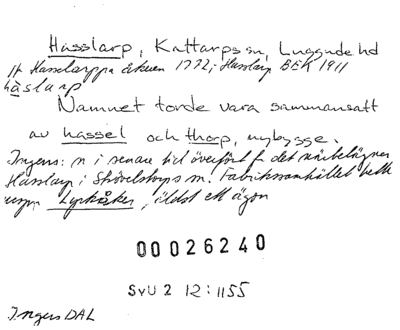 Hasslarp, Kattarps sn, Luggude hd
Hasslarppa åkern 1772; Hasslarp BEK 1911
hàslarp
Namnet torde vara sammansatt
av hassel och thorp, nybygge.
Ingers: n i senare tid överfört fr det närbelägna
Hasslarp i Skövelstorps sn. Fabrikssamhället hette
urspr Lyckåker, äldst ett ägon
00026240
SvU 2 12:1155
Ingers DAL